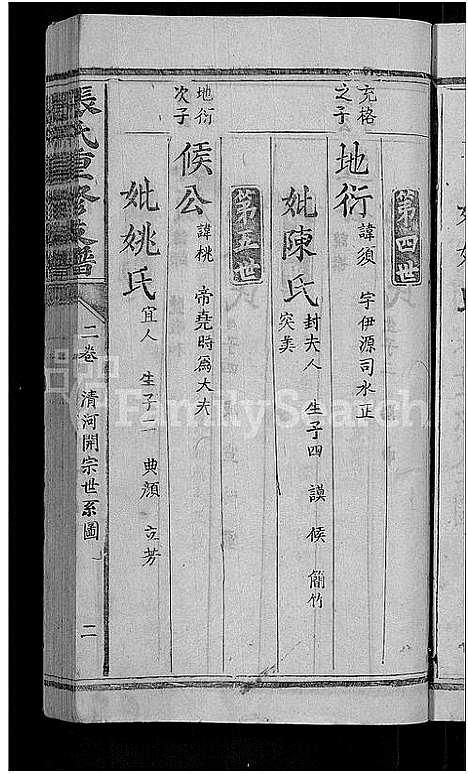 第四世
充格之子
地衍 諱須 字伊源司水正
妣陳氏 封夫人 生子四 謨 候 簡 竹
突美
第五世
地衍次子
候公 諱桃 帝堯時為大夫
妣姚氏 宜人 生子二 典顏 立芳
張氏重修支譜 二卷 清河開宗世系圖 二
FamilySearch